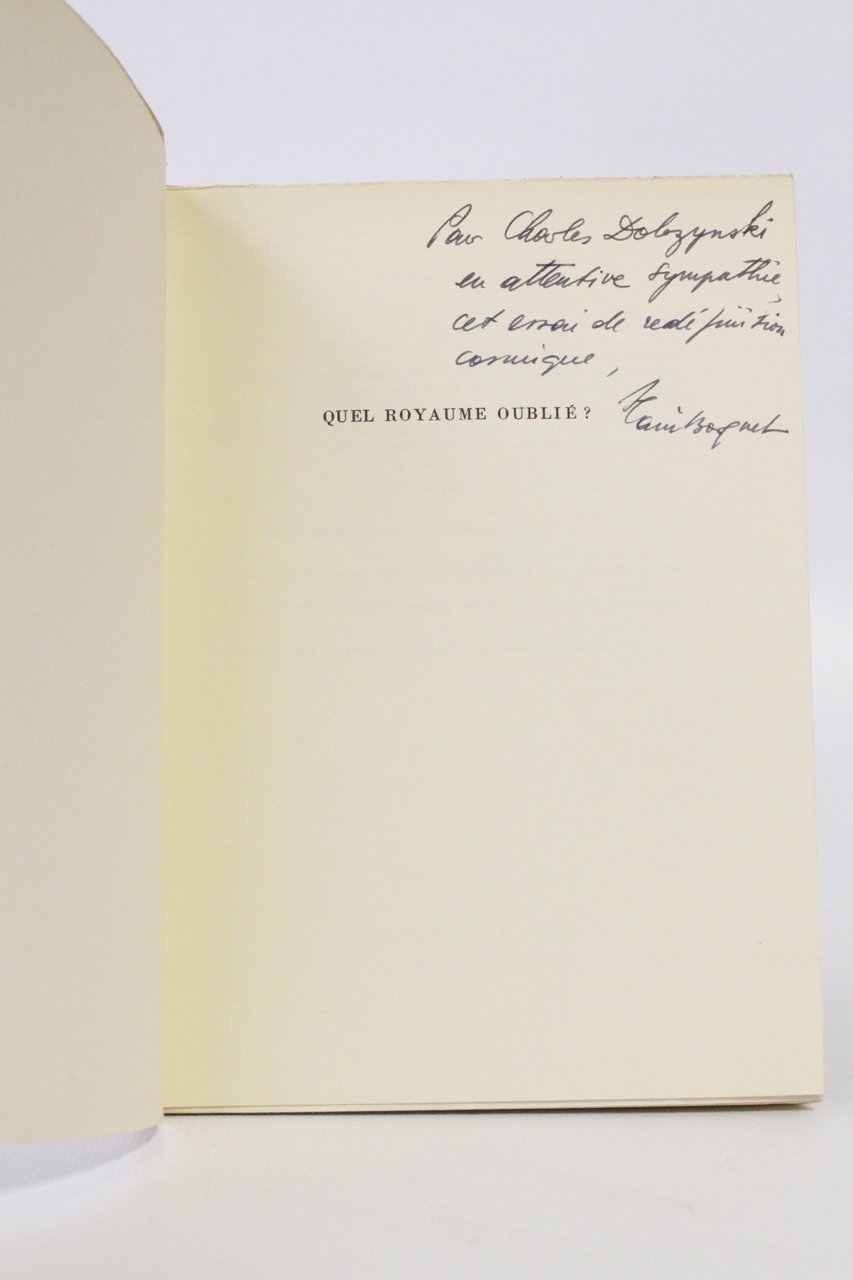 Pour Charles Dobzynski
en attentive sympathie,
cet essai de redéfinition
cosmique,
Alain Bosquet
QUEL ROYAUME OUBLIÉ ?